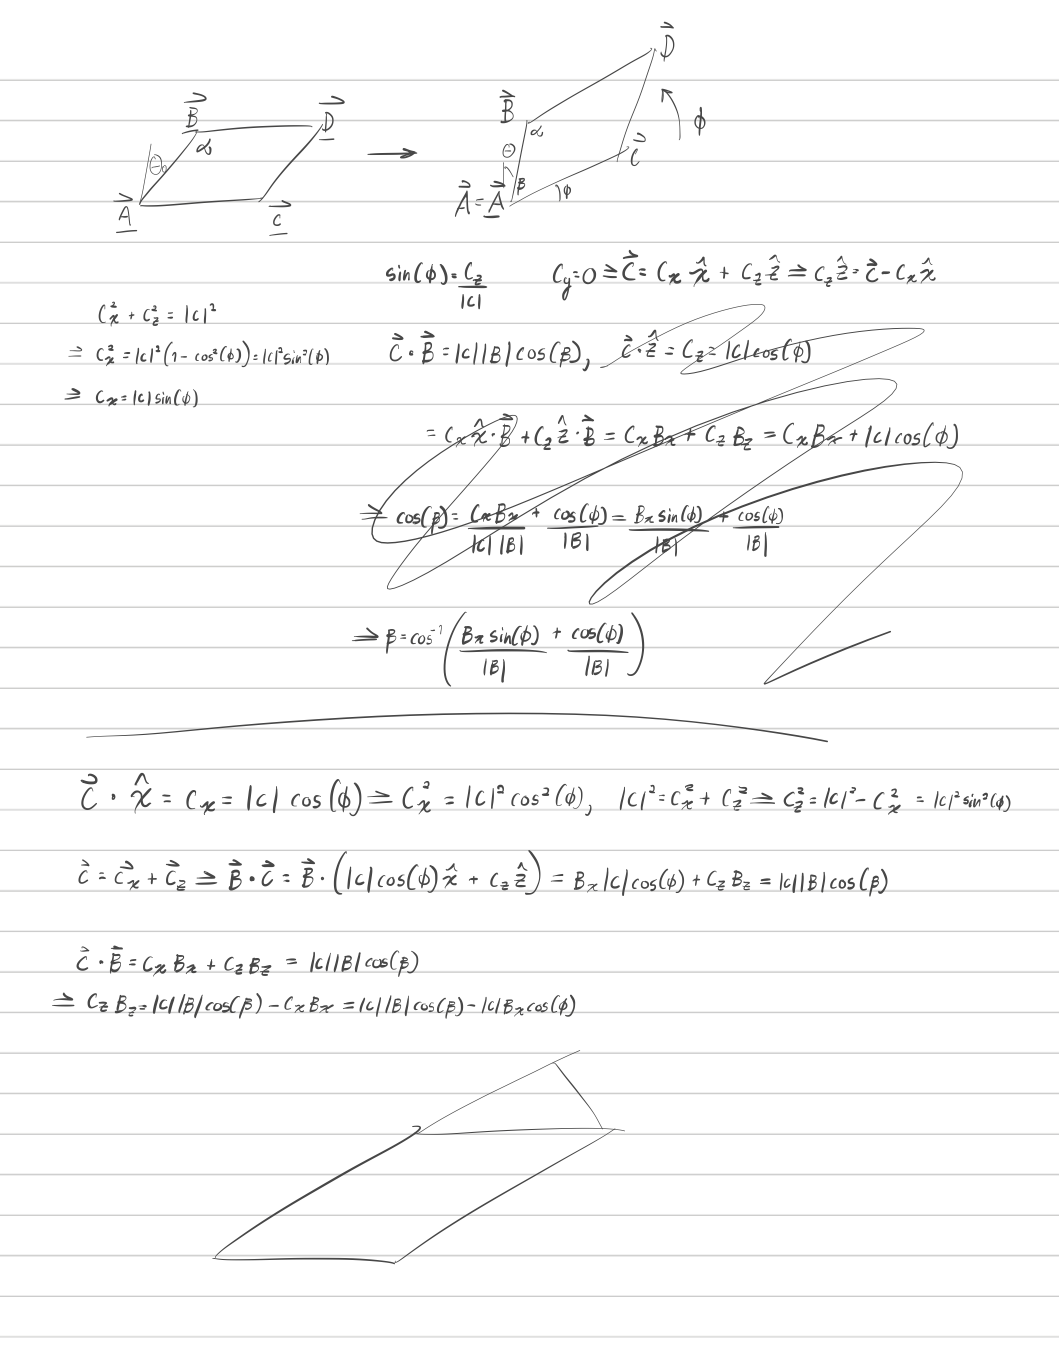 B⃗ D⃗ α θ₀ A⃗ C⃗ → B⃗ D⃗ α θ C⃗ ϕ A⃗=A⃗ β ϕ
sin(ϕ)=C_z/|C| C_y=0 ⇒ C⃗=C_x x̂ + C_z ẑ ⇒ C_z ẑ=C⃗-C_x x̂
C_x²+C_z²=|C|²
⇒ C_x²=|C|²(1-cos²(ϕ))=|C|²sin²(ϕ)
⇒ C_x=|C|sin(ϕ)
C⃗·B⃗=|C||B|cos(β), C⃗·ẑ=C_z=|C|cos(ϕ)
=C_x x̂·B⃗+C_z ẑ·B⃗=C_xB_x+C_zB_z=C_xB_x+|C|cos(ϕ)
⇒ cos(β)=C_xB_x/|C||B|+cos(ϕ)/|B|=B_x sin(ϕ)/|B|+cos(ϕ)/|B|
⇒ β=cos⁻¹(B_x sin(ϕ)/|B|+cos(ϕ)/|B|)
C⃗·x̂=C_x=|C|cos(ϕ) ⇒ C_x²=|C|²cos²(ϕ), |C|²=C_x²+C_z² ⇒ C_z²=|C|²-C_x²=|C|²sin²(ϕ)
C⃗=C⃗_x+C⃗_z ⇒ B⃗·C⃗=B⃗·(|C|cos(ϕ)x̂+C_z ẑ)=B_x|C|cos(ϕ)+C_zB_z=|C||B|cos(β)
C⃗·B⃗=C_xB_x+C_zB_z=|C||B|cos(β)
⇒ C_zB_z=|C||B|cos(β)-C_xB_x=|C||B|cos(β)-|C|B_xcos(ϕ)